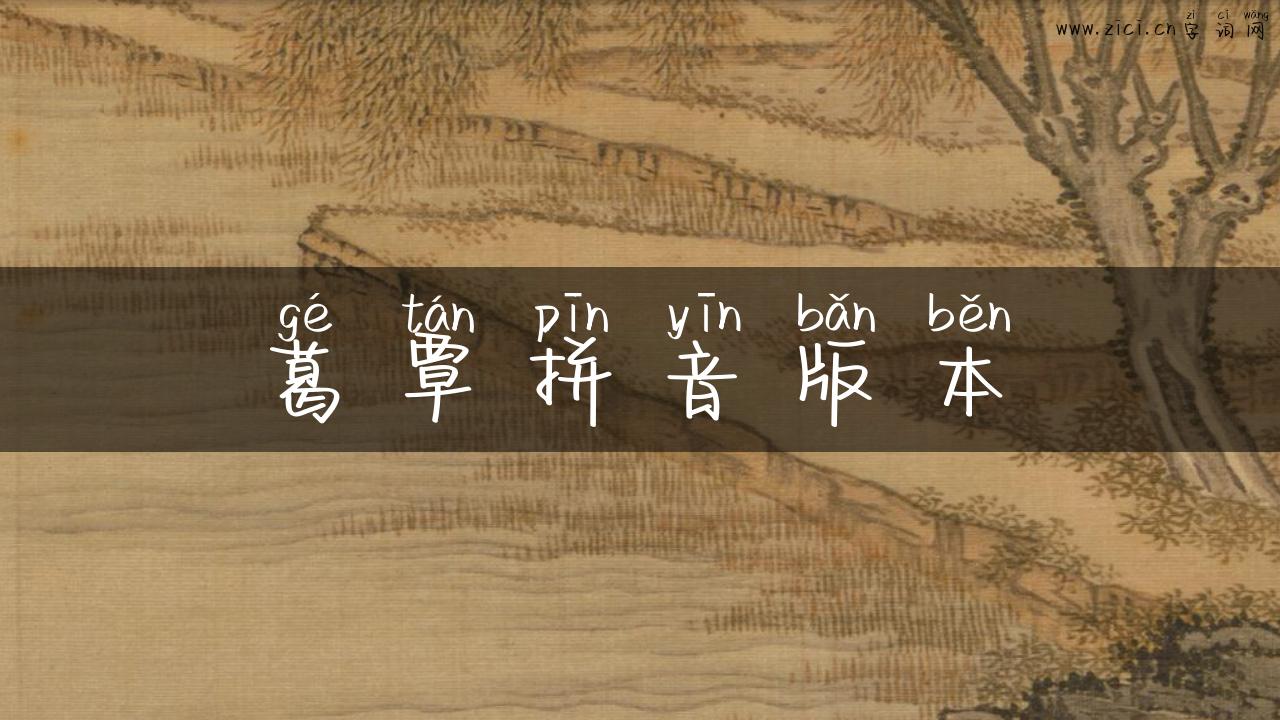 zì cí wǎng
www.zici.cn字词网
gé tán pīn yīn bǎn běn
葛覃拼音版本